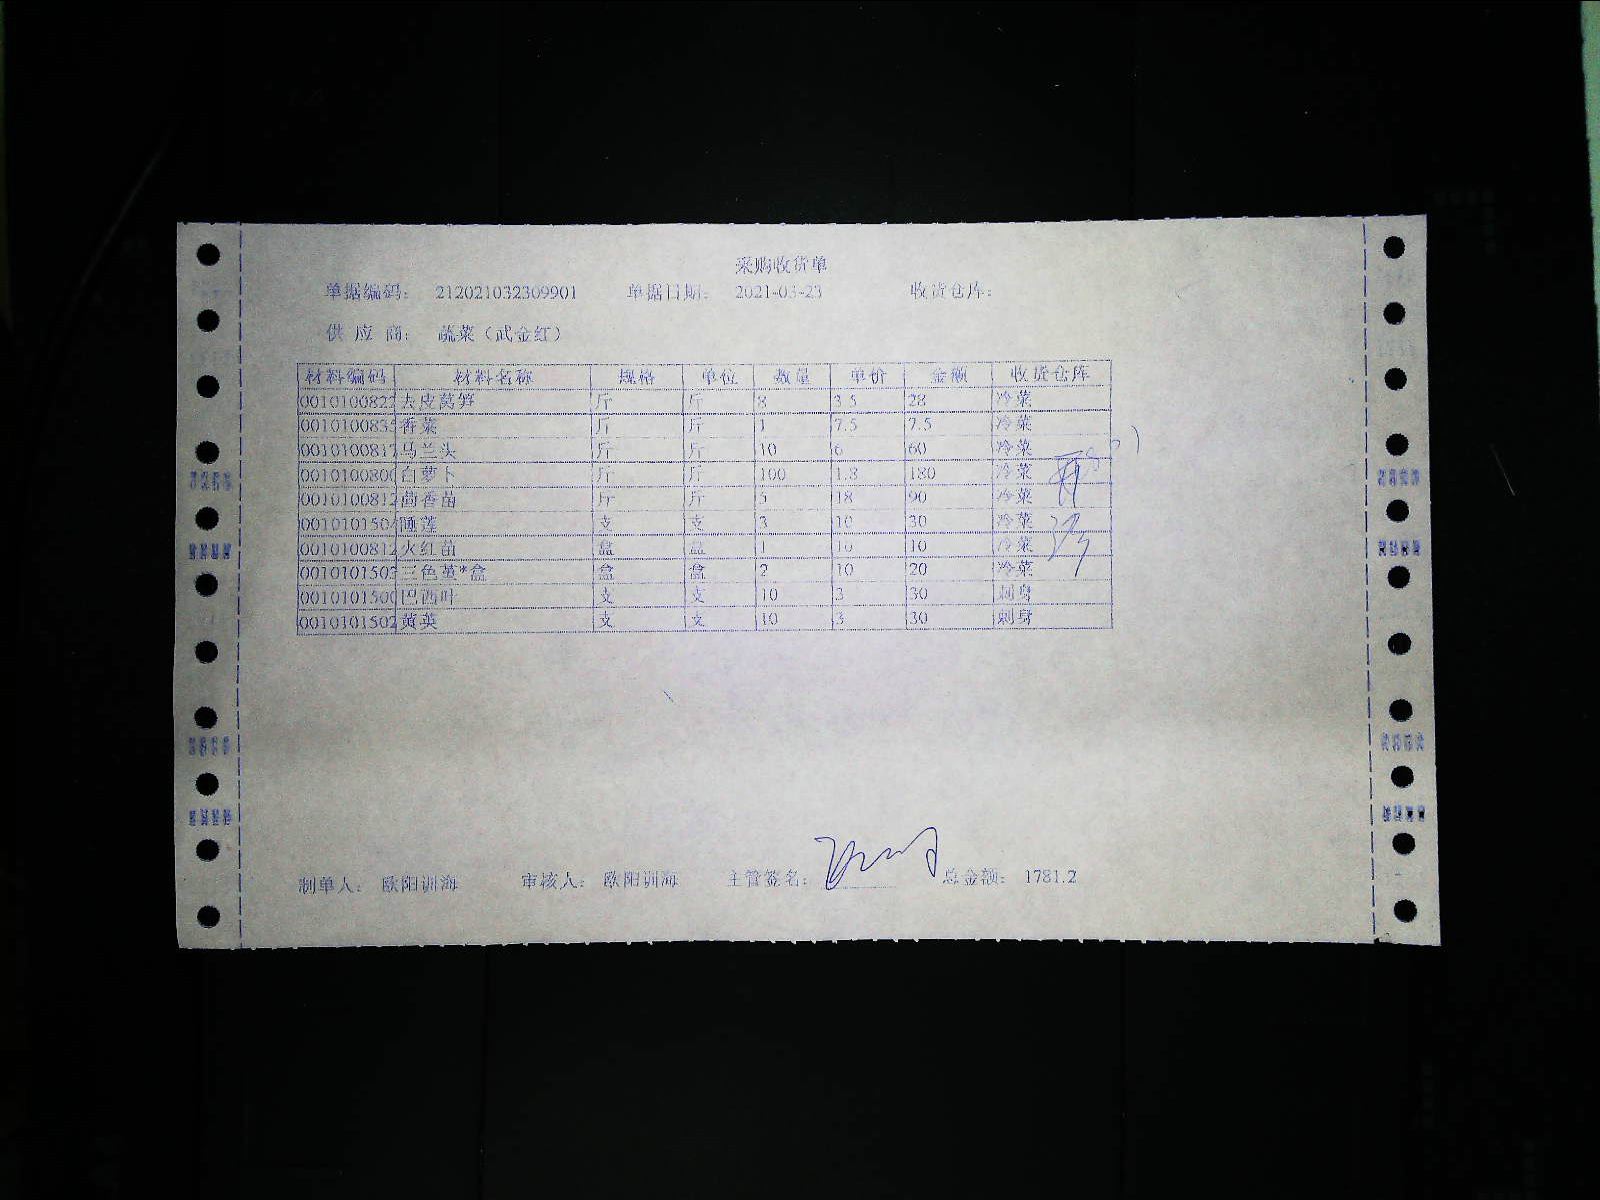 采购收货单
单据编码： 212021032309901 单据日期： 2021-03-23 收货仓库：
供 应 商： 蔬菜（武金红）
材料编码 材料名称 规格 单位 数量 单价 金额 收货仓库
0010100822 去皮莴笋 斤 斤 8 3.5 28 冷菜
0010100835 香菜 斤 斤 1 7.5 7.5 冷菜
0010100817 马兰头 斤 斤 10 6 60 冷菜
0010100800 白萝卜 斤 斤 100 1.8 180 冷菜
0010100812 茴香苗 斤 斤 5 18 90 冷菜
001010150 睡莲 支 支 3 10 30 冷菜
0010100812 火红苗 盒 盒 1 10 10 冷菜
0010101503 三色堇*盒 盒 盒 2 10 20 冷菜
0010101500 巴西叶 支 支 10 3 30 刺身
0010101502 黄英 支 支 10 3 30 刺身
制单人： 欧阳训海 审核人： 欧阳训海 主管签名： 总金额： 1781.2